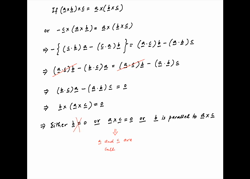 If (a×b)×c = a×(b×c)
or -c×(a×b) = a×(b×c)
⇒ -{(c·b)a - (c·a)b} = (a·c)b - (a·b)c
⇒ (a·c)b - (b·c)a = (a·c)b - (a·b)c
⇒ (b·c)a - (a·b)c = 0
⇒ b×(a×c) = 0
⇒ Either b = 0 or a×c = 0 or b is parallel to a×c
⇓
a and c are